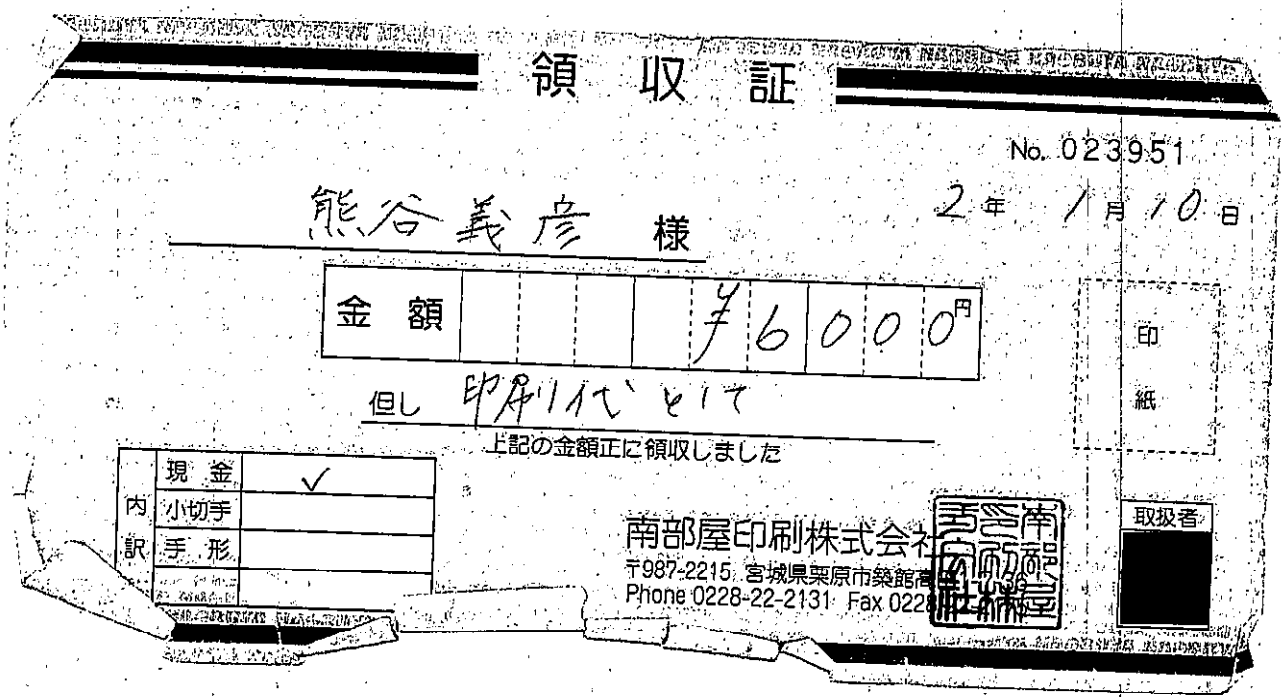 領収証
No. 023951
2年 1月10日
熊谷義彦 様
金額 ¥6000円
但し 印刷代として
上記の金額正に領収しました
印紙
内訳
現金 ✓
小切手
手形
南部屋印刷株式会社
〒987-2215 宮城県栗原市築館高
Phone 0228-22-2131 Fax 0228
取扱者